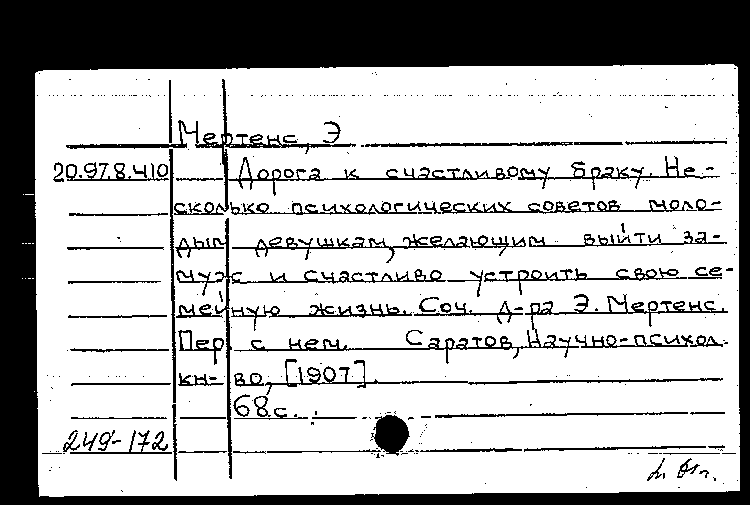 Мертенс, Э
20.97.8.410 Дорога к счастливому браку. Не-
сколько психологических советов моло-
дым девушкам, желающим выйти за-
муж и счастливо устроить свою се-
мейную жизнь. Соч. д-ра Э. Мертенс.
Пер с нем. Саратов, Научно-психол.
кн-во, [1907].
68 с.
249-172